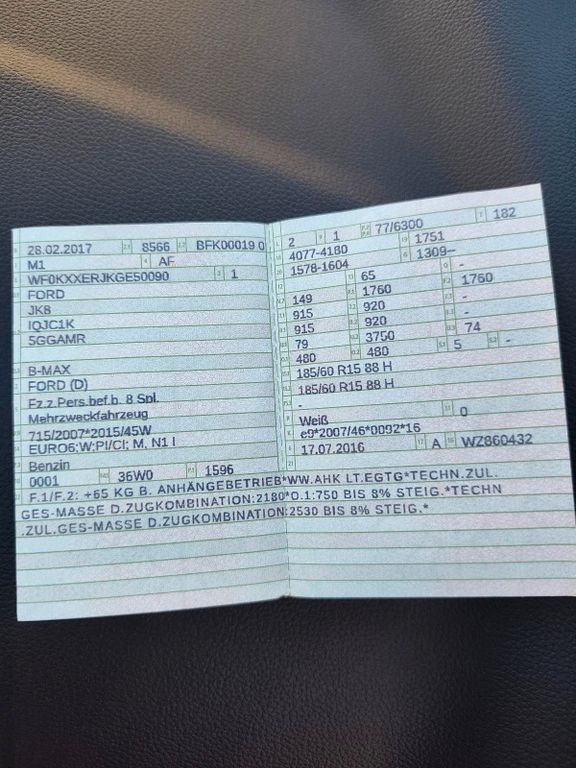 28.02.2017 8566 BFK00019 0
M1 AF
WF0KXXERJKGE50090 1
FORD
JK8
IQJC1K
5GGAMR
B-MAX
FORD (D)
Fz.z.Pers.bef.b. 8 Spl.
Mehrzweckfahrzeug
715/2007*2015/45W
EURO6;W;PI/CI; M, N1 I
Benzin
0001 36W0 1596
2 1 77/6300 182
4077-4180 1751
1578-1604 1309–
65 -
149 1760 1760
915 920 -
915 920 -
79 3750 74
480 480 5 -
185/60 R15 88 H
185/60 R15 88 H
-
Weiß
e9*2007/46*0092*16 0
17.07.2016 A WZ860432
F.1/F.2: +65 KG B. ANHÄNGEBETRIEB*WW.AHK LT.EGTG*TECHN.ZUL.
GES-MASSE D.ZUGKOMBINATION:2180*O.1:750 BIS 8% STEIG.*TECHN
.ZUL.GES-MASSE D.ZUGKOMBINATION:2530 BIS 8% STEIG.*